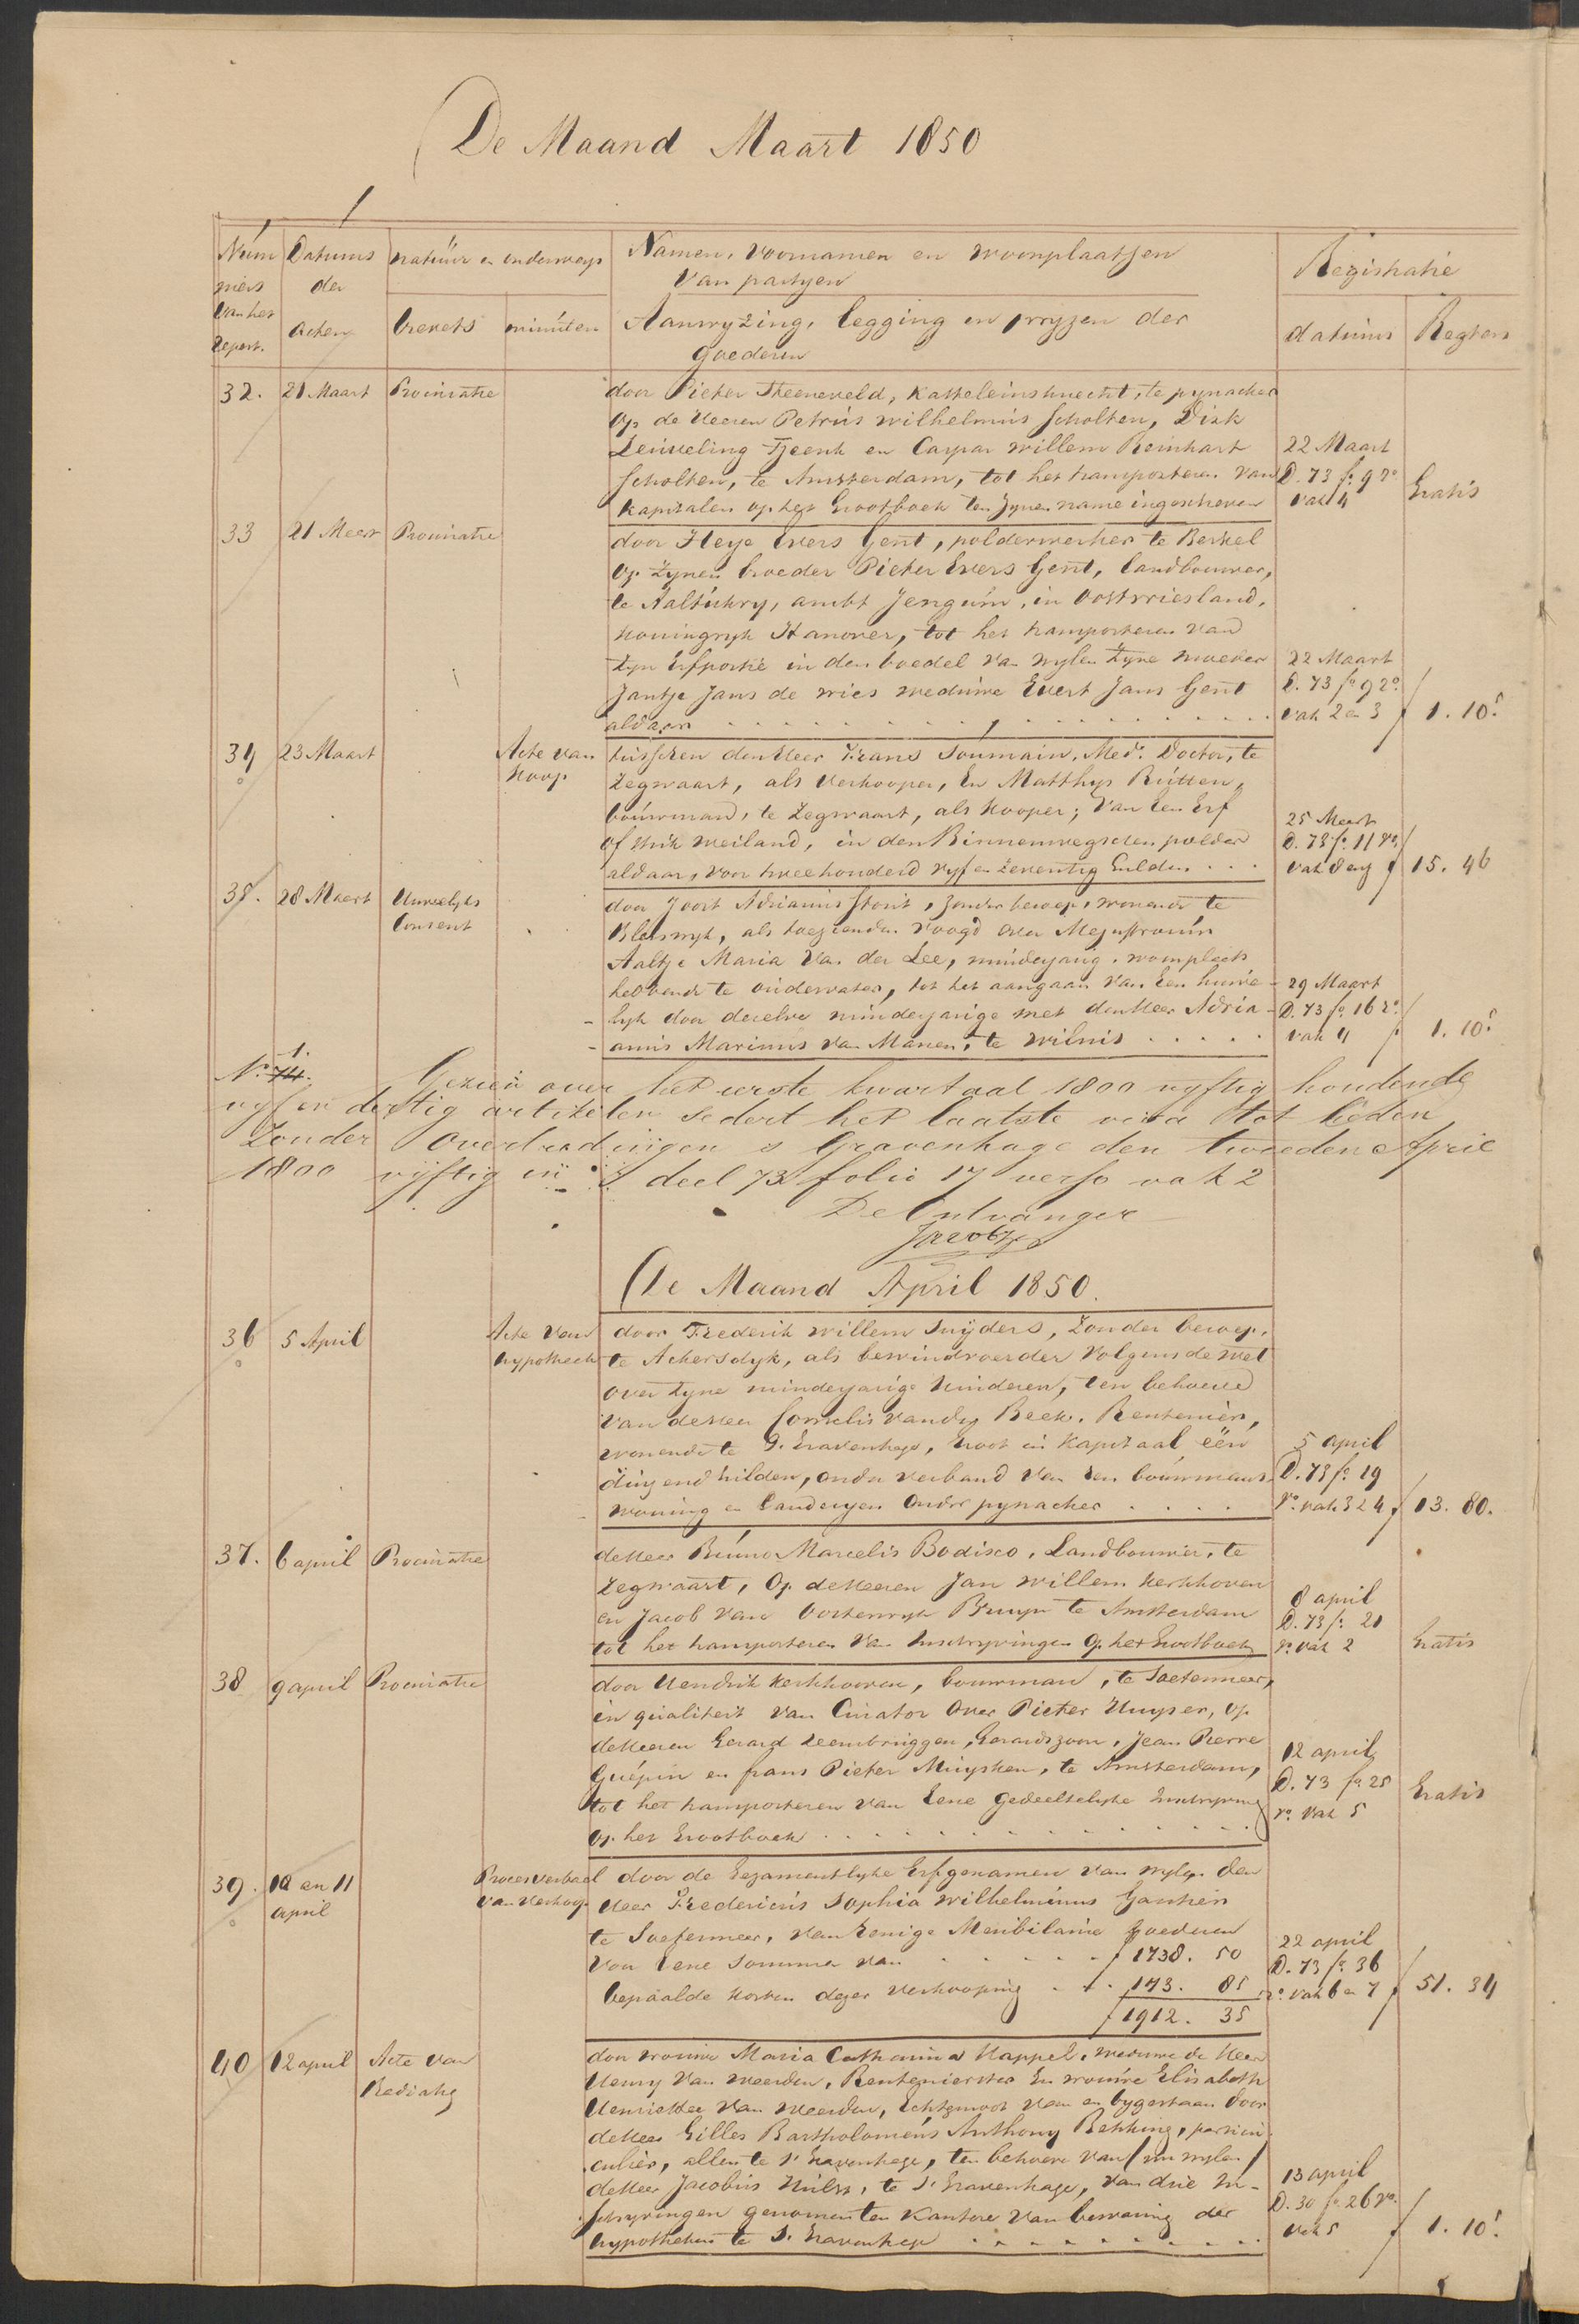 De Maand Maart 1850
Num Datums natuur en onderwerp Namen, voornamen en woonplaatsen Registratie
mers der van partyen
van het acten brevets minuten Aanwyzing, legging en pryzen der datums Regten
Repert. goederen
32. 21 Maart Procuratie door Pieter Steeneveld, Kasteleinsknecht, te pynacker
op de Heeren Petrus Wilhelmus Scholten, Dirk
Tjeenk en Caspar Willem Reinhart 22 Maart
Scholten, te Amsterdam, tot het transporteren van D. 73 fo. 9 ro
Kapitalen op het Grootboek ten zynen name ingeschreven vak 4 Gratis
33 21 Meert Procuratie door Heye Evers Gent, polderwerker te Berkel
op zynen broeder Pieter Evers Gent, landbouwer,
te ambt Jengum, in Oostvriesland,
Koningryk Hanover, tot het transporteren van
zyn Erfportie in den boedel van wylen zyne moeder 22 Maart
Jantje Jans de Vries weduwe Evert Jans Gent D. 73 fo 9 ro.
aldaar . . . . . . . . . . vak 2 en 3 f 1. 10 5
34 23 Maart Acte van tusschen den Heer Frans Soumain, Med. Doctor, te
Koop Zegwaart, als Verkooper, En Matthys Rutten,
bouwman, te Zegwaart, als Kooper; van Een Erf 25 Meert
of stuk weiland, in den Binnenwegschen polder D. 73 fo. 11 vo.
aldaar, voor tweehonderd vyf en zeventig Gulden . . . vak 8 en 9 f 15. 46
35. 28 Meert Huwelyks door Joost Adrianus Stout, zonder beroep, wonende te
Consent Bleiswyk, als toezienden voogd over Mejuffrouw
Aaltje Maria Van der Lee, minderjarig, woonplaats
hebbende te oudewater, tot het aangaan van Een huwe- 29 Maart
lyk door dezelve minderjarige met den Heer Adria- D. 73 fo. 16 ro.
anus Marinus van Manen, te Wilnis . . . . . vak 4 f 1. 10 5
No. 1. Gezien over het eerste kwartaal 1800 vyftig houdende
vyf en dertig artikelen sedert het laatste visa tot heden
zonder overtredingen s Gravenhage den tweeden April
1800 vyftig in deel 73 folio 17 verso vak 2
De Ontvanger
De Maand April 1850.
36 5 April Acte van door Frederik Willem Snyders, zonder beroep,
hypotheek te Ackersdyk, als bewindvoerder volgens de wet
over zyne minderjarige kinderen, ten behoeve
van de Heer Cornelis van der Beek, Rentenier,
wonende te S. Gravenhage, groot in Kapitaal één 5 April
duyzend Gulden, onder verband van een bouwmans- D. 73 fo. 19
woning en Landeryen onder pynacker . . . . vo. vak 3 & 4 f 13. 80.
37. 6 april Procuratie de Heer Bruno Marcelis Bodisco, Landbouwer, te
Zegwaart, Op de Heeren Jan Willem Kerkhoven 8 april
en Jacob van Oosterwyk Bruyn te Amsterdam D. 73 fo. 20
tot het transporteren van Inschryvingen op het Grootboek vo. vak 2 Gratis
38 9 april Procuratie door Hendrik Kerkhoven, bouwman, te Soetermeer,
in qualiteit van Curator over Pieter Huyser, op
de Heeren Gerard Leembruggen, Gerardszoon, Jean Pierre 12 april
Guépin en frans Pieter Muysken, te Amsterdam, D. 73 fo 25
tot het transporteren van Eene gedeeltelyke Inschryving ro. vak 5 Gratis
op het Grootboek . . . . . . . . . .
39. 10 en 11 Proces verbaal door de gezamentlyke Erfgenamen van wylen den
april van verkoop Heer Fredericus Sophia Wilhelminus Ganken
te Soetermeer, van Eenige Meubilaire Goederen 22 april
voor Eene somma van . . . . . f 1738. 50 D. 73 fo 36
bepaalde kosten dezer verkooping . . . 173. 85 ro. vak 6 en 7 f 51. 34
f 1912. 35
40 12 april Acte van door vrouwe Maria Catharina Kappel, weduwe de Heer
Radiatie Henry van Weerden, Rentenierster En vrouwe Elisabeth
Henriette van Weerden, Echtgenoot van en bygestaan door
de Heer Gilles Bartholomeus Anthony Bekking, particu-
culier, allen te s' Gravenhage, ten behoeve van / nu wylen / 13 april
de Heer Jacobus Hulst, te S. Gravenhage, van drie In- D. 30 fo. 26 vo.
schryvingen genomen ten Kantore van bewaring der vak 5 f 1. 10 5
hypotheken te S. Gravenhage . . . . . . . .